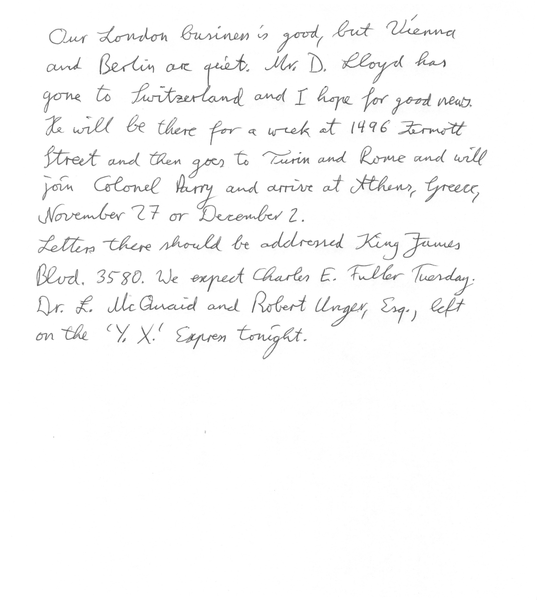 Our London business is good, but Vienna
and Berlin are quiet. Mr. D. Lloyd has
gone to Switzerland and I hope for good news.
He will be there for a week at 1496 Zermott
Street and then goes to Turin and Rome and will
join Colonel Parry and arrive at Athens, Greece,
November 27 or December 2.
Letters there should be addressed King James
Blvd. 3580. We expect Charles E. Fuller Tuesday.
Dr. L. McQuaid and Robert Unger, Esq., left
on the 'Y. X.' Express tonight.